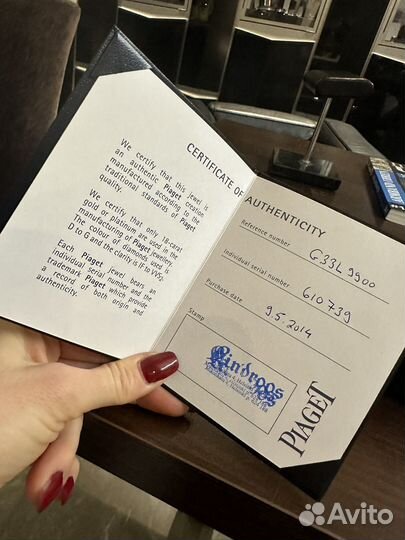 We certify that this jewel is
an authentic Piaget creation
manufactured according to the
traditional standards of Piaget
quality.
We certify that only 18-carat
gold or platinum are used in the
manufacturing of Piaget Jewellery
The colour of diamonds used is
D to G and the clarity is IF to VVS2.
Each Piaget jewel bears an
individual serial number and the
trademark Piaget which provide
a record of both origin and
authenticity.
CERTIFICATE OF AUTHENTICITY
Reference number G33L9900
Individual serial number 610739
Purchase date 9.5.2014
Stamp
Lindroos
PIAGET
Avito